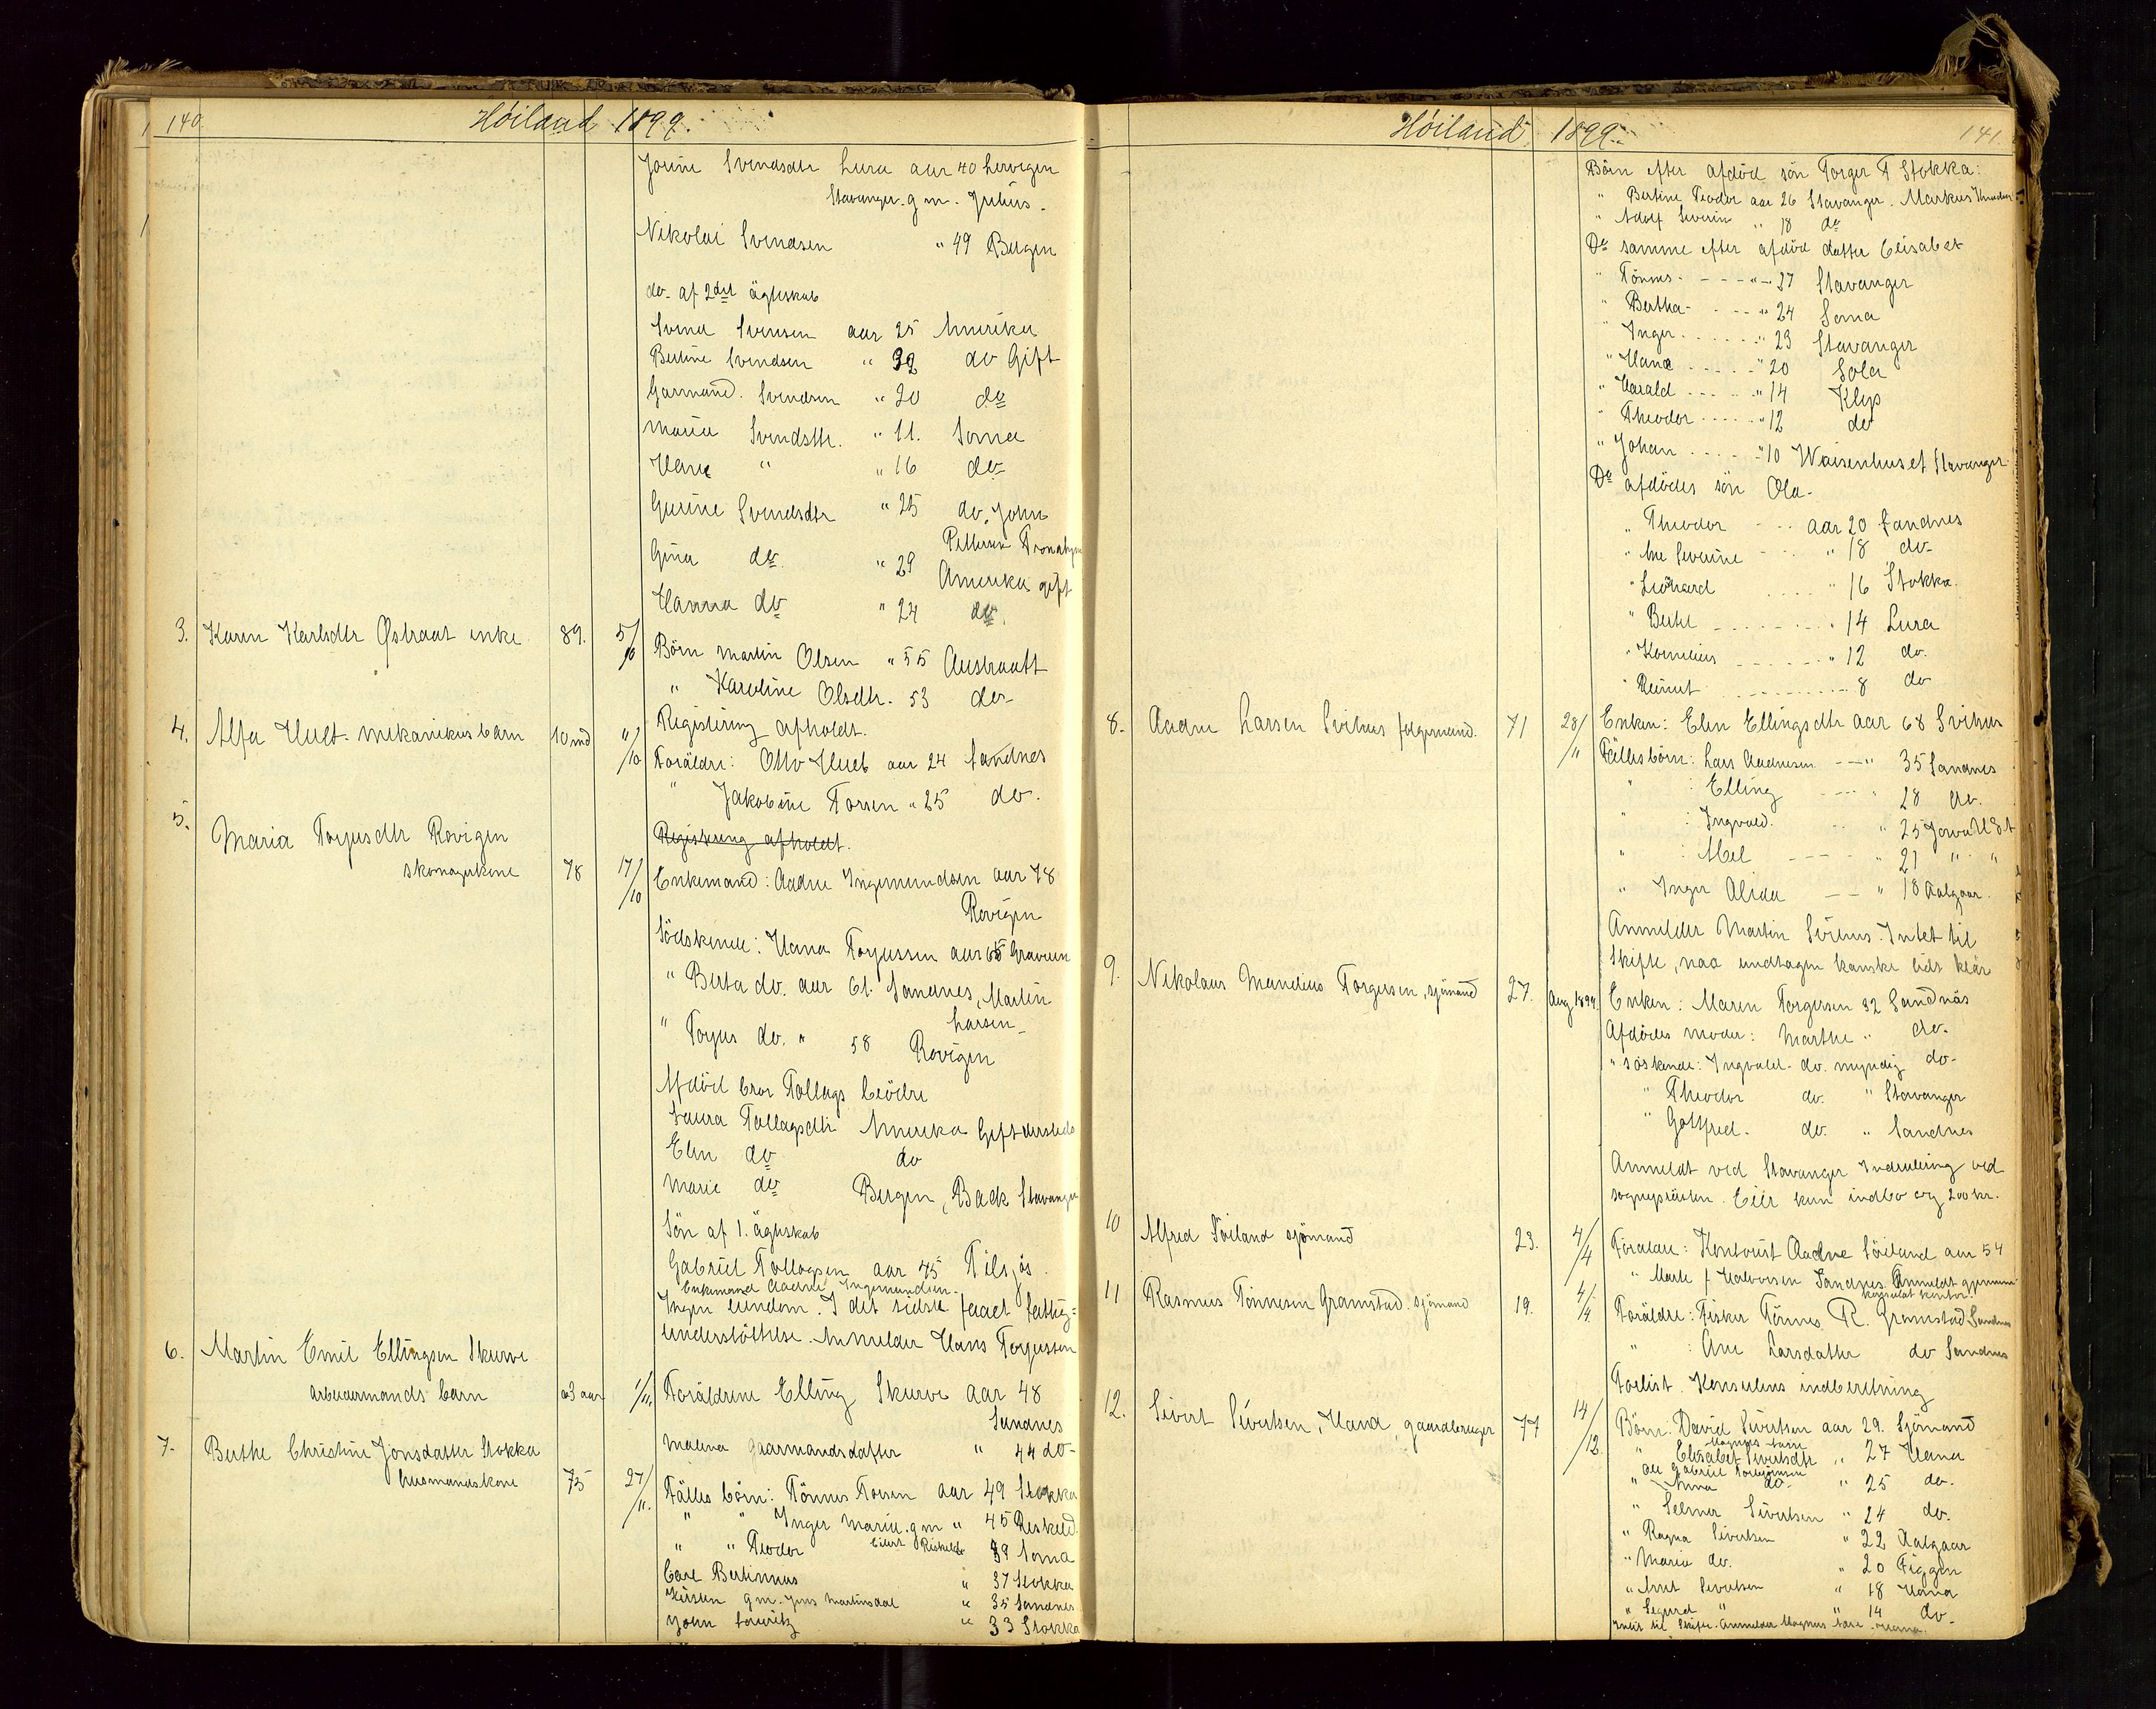 140. Høiland 1899.
Jorine Svendsdtr Lura aar 40 Lervigen
Stavanger. g m. Julius.
Nikolai Svendsen " 49 Bergen
do. af 2det ägteskab
Svend Svensen aar 25 Amerika
Bertine Svendsen " 32 do Gift
Garmand. Svendsen " 20 do
Maria Svendsttr. " 11. Soma
Hane " " 16 do
Gurine Svendsdtr " 25 do, John
Pettersen
Gina do " 29 Amerika gift
Hanna do " 24 do.
3. Karen Karlsdtr Østraat enke 89. 5/10 Börn Martin Olsen " 55 Austraatt
" Karoline Olsdtr. 53 do
Registering afholdt.
4. Alfa Huet. mekanikus barn 10 md 11/10 Foräldre: Otto Hueb aar 24 Sandnes
" Jakobine Torsen " 25 do.
Registering afholdt.
5. Maria Torjusdtr Rovigen
skomagerkone 78 17/10 Enkemand: Aadne Ingemundsen aar 78
Rovigen
Södskende: Hana Torjussen aar 65 Graveren
" Berta do. aar 61. Sandnes, Martin
Larsen
" Torjus do. " 58 Rovigen
Afdöd bror Tollags
Laura Tollagsdtr Amerika Gift
Elen do do
Marie do Bergen, Back Stavanger
Sön af 1. ägteskab
Gabriel Tollagsen aar 45 Tilsjös
Enkemand Aadne Ingemundsen
Ingen eiendom. I det sidste faaet fattig=
understöttelse. Anmelder Hans Torjussen
6. Martin Emil Ellingsen Skurve
arbeidermands barn 3 aar 1/11. Foräldrene Elling Skurve aar 48
Sandnes
Malena Gaarmandsdatter " 44 do
7. Berthe Christine Jonsdatter Stokka
husmandskone 75 27/11. Fälles börn: Tönnes Torsen aar 49 Stokka
" " Inger Marie. g m " 45 Riskeld
Eilert Riskeld
" " Teodor 39 Soma
Carl Bertinnus " 37 Stokka
Kirsten g m. Jens Martinsdal " 35 Sandnes
John Lauritz " 33 Stokka
Høiland 1899. 141.
Börn efter afdöd sön Torger T Stokka:
" Bertine Teodor aar 26 Stavanger. Markus Knudsen
" Adolf Severin " 18 do
Do samme efter afdöd datter Elisabet
" Tönnes " 27 Stavanger
" Bertha " 24 Soma
" Inger " 23 Stavanger
" Hana " 20 Sola
" Harald " 14 Klep
" Theodor " 12 do
" Johan " 10 Waisenhuset Stavanger
Do afdödes sön Ola.
" Theodor aar 20 Sandnes
" Ane Severine " 18 do
" Leonard " 16 Stokka.
" Bertel " 14 Lura
" Kornelius " 12 do.
" Reinert 8 do
8. Aadne Larsen Svihus folgemand. 71 28/11 Enken: Elen Ellingsdtr aar 68 Svihus
Fällesbörn: Lars Aadnesen " 35 Sandnes
" : Elling " 28 do.
" : Ingvald. " 25
" : Abel " 21 " "
" Inger Alida " 18 Aalgaar.
Anmelder Martin Svihus. Intet til
Skifte, naa undtagen kanske lidt klär
9. Nikolaus Mandius Torgersen, sjömand 27. Aug 1894. Enken: Maren Torgersen 32 Sandnäs
Afdödes moder: Marthe " do.
" söskende: Ingvald. do. myndig do.
" Theodor do. " Stavanger
" Gottfred. do. " Sandnes
Anmeldt ved Stavanger Indrulering ved
sogneprästen. Eier kun indbo og 200 kr.
10 Alfred Söiland sjömand 23. 4/4 Foräldre: Kontorist Aadne Söiland aar 54
" Marte f Halvorsen Sandnes. Anmeldt gjennem
konsulat kontor
11 Rasmus Tönnesen Gramstad. sjömand 19. 4/4. Foräldre: Fisker Tönnes R. Gramstad Sandnes
" : Ane Larsdatter do Sandnes
Forlist. Konsulens indberetning
12. Sivert Sivertsen, Hana, gaardbruger 77 14/12. Börn: David Sivertsen aar 29. Sjömand
Magnus
" Elisabet Sivertsdtr " 27 Hana
Ole Gabriel Torbjörnsen
" Anna do. " 25 do.
" Selmer Sivertsen " 24 do.
" Ragna Sivertsen " 22 Aalgaar
" Maria do. " 20 Figgen
" Arnt Sivertsen " 18 Hana
" Sigurd " " 14 do.
Intet til Skifte. Anmelder Magnus